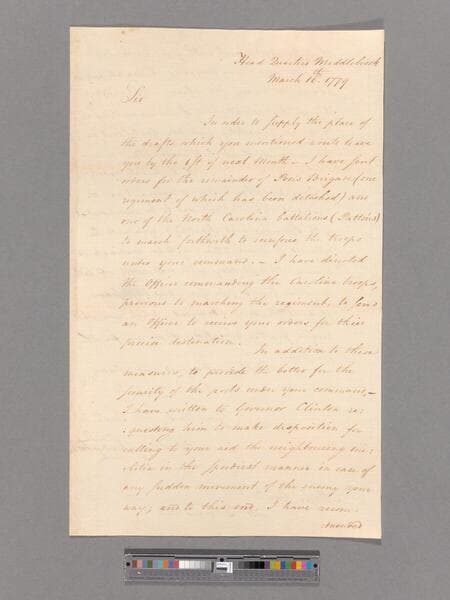 Head Quarters Middlebrook
March 16th. 1779
Sir
In order to supply the place of
the drafts which you mentioned would leave
you by the 1st of next month — I have sent
orders for the remainder of Poor's Brigade (one
regiment of which has been detached) and
one of the North Carolina battalions (Pattons)
to march forthwith to reinforce the troops
under your command. — I have directed
the Officer commanding the Carolina troops,
previous to marching the regiment, to send
an Officer to receive your orders for their
precise destination.
In addition to these
measures, to provide the better for the
security of the posts under your command, —
I have written to Governor Clinton re:
:questing him to make disposition for
calling to your aid the neighbouring mi:
:litia in the speediest manner in case of
any sudden movement of the enemy your
way; and to this end, I have recom
:mended